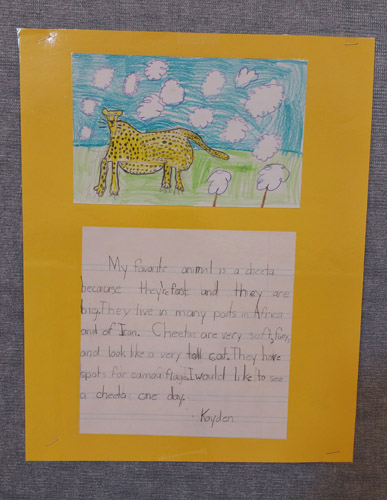 My favorite animal is a cheeta
because they're fast and they are
big. They live in many parts in Africa
and of Iran. Cheetas are very soft, furry,
and look like a very tall cat. They have
spots for camouflage. I would like to see
a cheeta one day.
Kayden